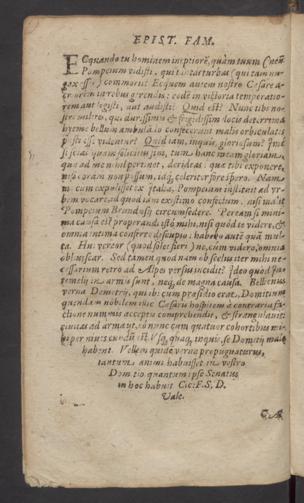 EPIST. FAM.
ECquando tu hominem ineptiorē, quàm tuum (
Pompeium vidisti, qui tantas turbas (qui tam nu-
gax esset) commorit? Ecquem autem nostro Cesare a-
criorem in rebus gerendis: eodē in victoria temperatio-
rem aut legisti, aut audisti? Quid est? Nunc tibi nos-
tri milites, qui durissimis & frigidissim. locis teterrima
hyeme bellum ambulādo confecerunt malis orbiculatis
esse videntur? Quid tam, inquis, gloriosum? Imò
si scias quàm solicitus sim, tum hanc meam gloriam,
quæ ad me nihil pertinet, derideas: quæ tibi exponere,
nisi coràm non possum, idq́; celeriter fore spero. Nam
me cum expulisset ex Italia, Pompeium instituit ad vr-
bem vocare, ad quod iam existimo confectum. nisi maluit
Pompeium Brundusij circumsedere. Peream si mini-
ma causa est properandi istò mihi. nisi quòd te videre, &
omnia intima conferre discupio: habeo autē quà mul-
ta. Hui vereor (quod solet fieri) ne, cùm videro, omnia
obliuiscar. Sed tamen quod nam ob scelus iter mihi ne-
cessarium retro ad Alpes versus incidit? Ideo quòd In-
temelij in armis sunt, neq́; de magna causa. Bellienus
verna Demetrij, qui ibi cum præsidio erat, Domitium
quendam nobilem illic Cæsaris hospitem à contraria fa-
ctione nummis acceptis comprehendit, & strangulauit:
ciuitas ad arma iit, eò nunc cum quatuor cohortibus mi-
hi per niues eundū est. Vsq́; quaq, inquis, se Domitij malè
habent. Vellem quidē verna propugnatus,
tantum animi habuisset in vestro
Domitio quantum ipse Senatus
in hoc habuit Cic: F. S. D.
Vale.